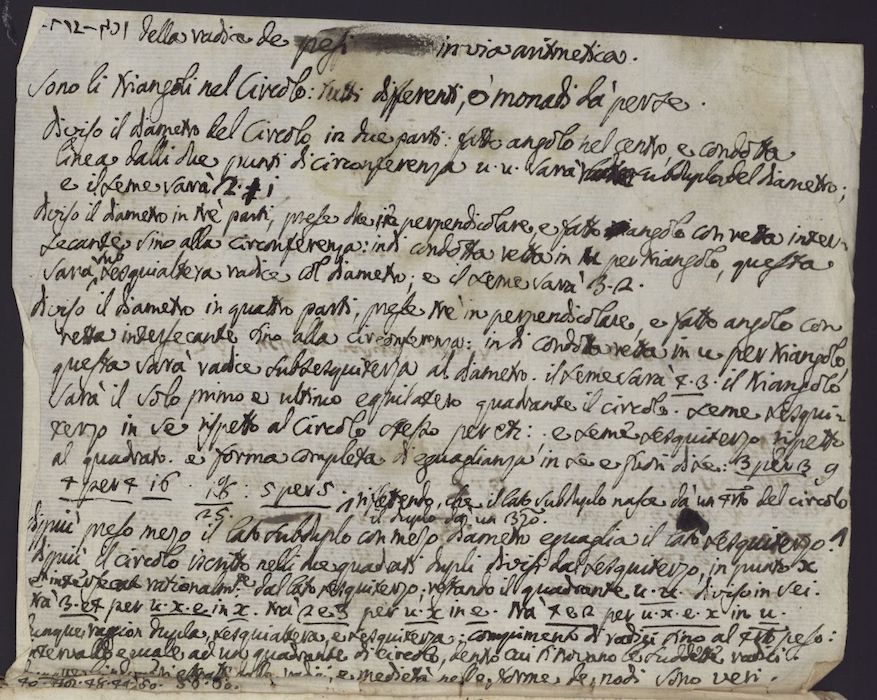 della radice de pesi in via aritmetica.
sono li triangoli nel Circolo: tutti differenti, ò monadi dà per se.
diviso il diametro del Circolo in due parti: fatto angolo nel centro, e condotta
linea dalli due punti di circonferenza u. u. sarà subduplo del diametro;
e il seme sarà 2. 1
diviso il diametro in trè parti, prese due in perpendicolare, e fatto triangolo con retta inter-
secante sino alla circonferenza: indi condotta retta in u per triangolo, questa
sarà sesquialtera radice col diametro; e il seme sarà 3. 2.
diviso il diametro in quattro parti, prese trè in perpendicolare, e fatto angolo con
retta intersecante sino alla circonferenza: indi condotta retta in u per triangolo,
questa sarà radice subsesquiterza al diametro. il seme sarà 4. 3. il triangolo
sarà il solo primo e ultimo equilatero quadrante il circolo. seme sesqui-
terzo in se rispetto al Circolo stesso per : e seme sesquiterzo rispetto
al quadrato. e forma completa di eguaglianza in se e fuori di se: 3 per 3 9
4 per 4 16 : 5 per 5. 25 riflettendo, che il lato subduplo nasce dà un 4to del circolo
il duplo da un 3zo.
di più preso mezo il lato subduplo con mezo diametro eguaglia il lato sesquiterzo.
di più il circolo iscritto nelli due quadrati dupli divisi dal sesquiterzo, in punto x
e intersecato rationalmte dal lato sesquiterzo: restando il quadrante u. u. diviso in sei.
Trà 3. e 4 per u. x. e in x. trà 2 e 3 per u. x in e. Trà 4 e 2 per u. x. e. x in u.
dunque raggion dupla, sesquialtera, e sesquiterza: compimenti di radici sino al 4to peso:
intervallo eguale ad un quadrante di circolo, dentro cui si trovano le suddette radici.
e medietà nelle forme de nodi sono veri.
40. 48. 49. 50. 50. 60.